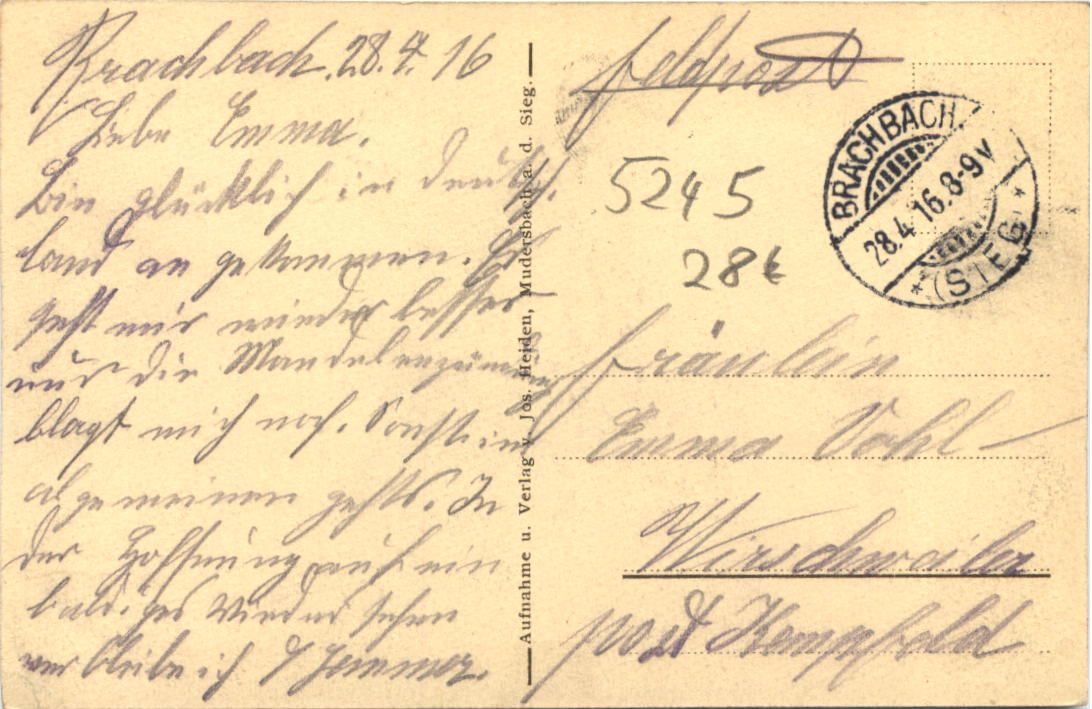 Brachbach, 28.4.16
Liebe Emma.
bin glücklich in deutsch
land an gekommen. Es
geht mir wieder besser
nur die Mandelenzündung
blagt mich noch. Sonst im
algemeinen gehts. In
der Hoffnung auf ein
baldiges Wieder sehen
bleibe ich
Aufnahme u. Verlag v. Jos. Heiden, Mudersbach a. d. Sieg.
Feldpost
BRACHBACH.
28.4.16.8-9V
* (SIEG) *
5245
28€
Fräulein
Emma Vohl
Wirschweiler
post Kempfeld